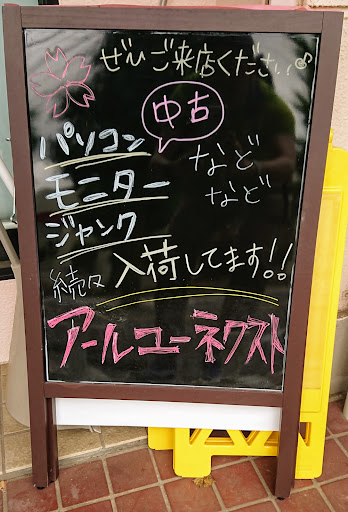 ぜひご来店ください♪
中古
パソコン
モニター
ジャンク
などなど
続々入荷してます!!
アールユーネクスト